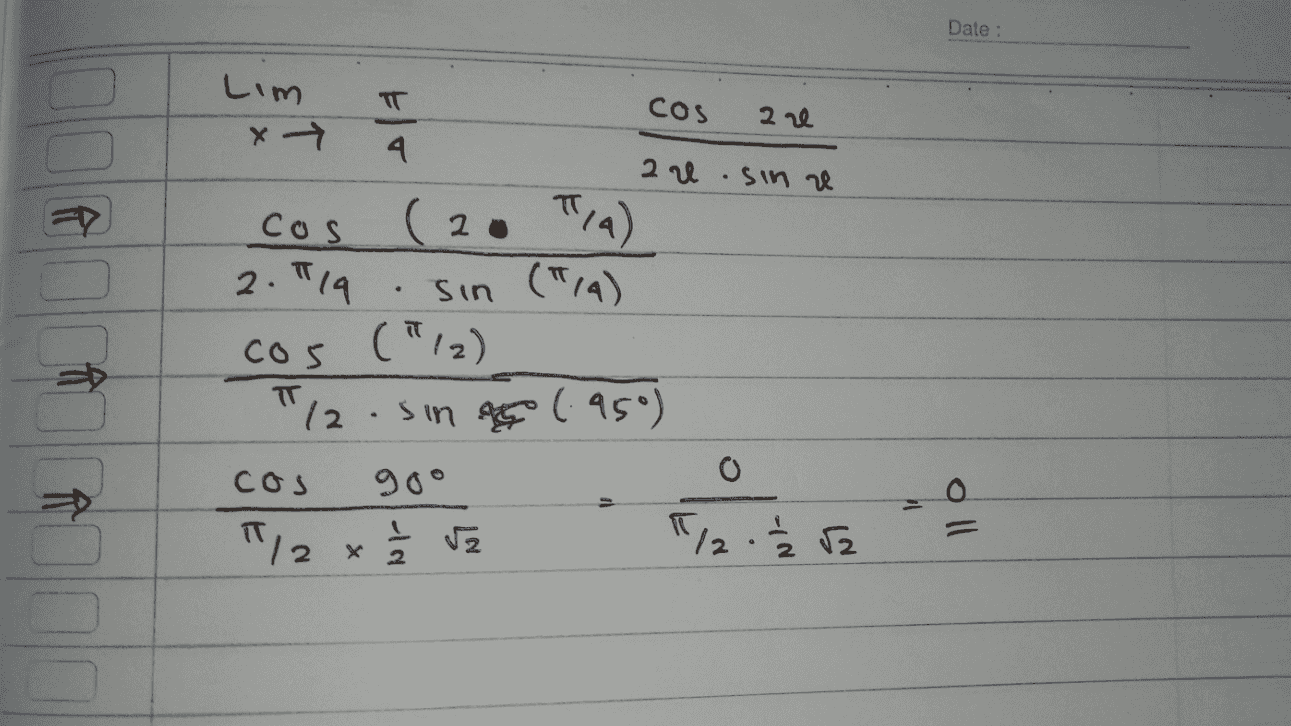 Date :
Lim x → π/4 cos 2x / 2x . sin x
⇒ cos (2 • π/4) / 2 . π/4 . sin (π/4)
⇒ cos (π/2) / π/2 . sin (45°)
⇒ cos 90° / π/2 x 1/2 √2 = 0 / π/2 . 1/2 √2 = 0